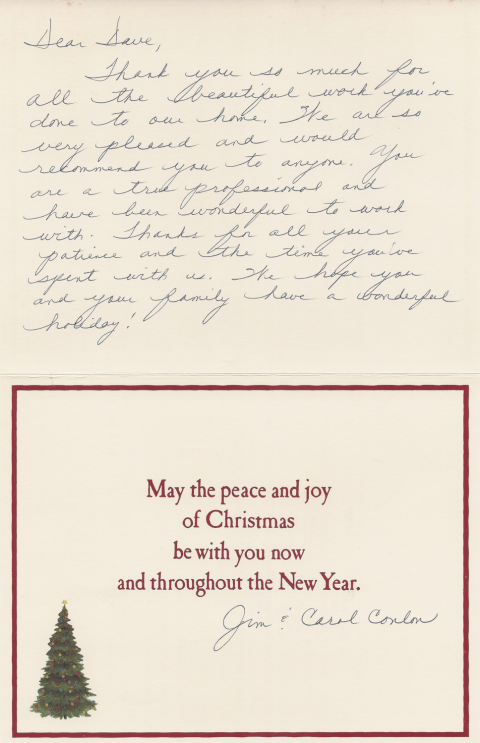 Dear Dave,
Thank you so much for
all the beautiful work you've
done to our home. We are so
very pleased and would
recommend you to anyone. You
are a true professional and
have been wonderful to work
with. Thanks for all your
patience and the time you've
spent with us. We hope you
and your family have a wonderful
holiday!
May the peace and joy
of Christmas
be with you now
and throughout the New Year.
Jim & Carol Conlon